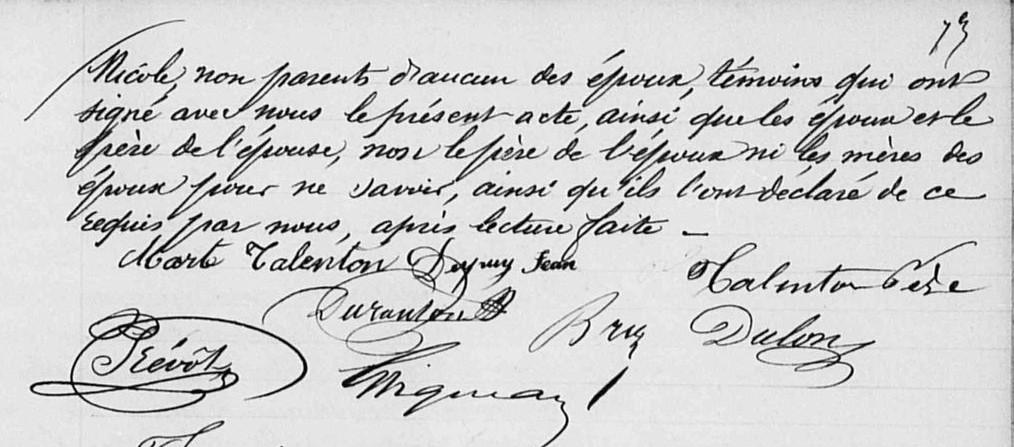 73
Nicole, non parents d'aucun des époux, témoins qui ont
signé avec nous le présent acte, ainsi que les époux et le
père de l'épouse, non le père de l'époux ni les mères des
époux pour ne savoir, ainsi qu'ils l'ont déclaré de ce
requis par nous, après lecture faite _
Marte Talenton Dupuy Jean Talenton Père
Duranton Dulon
Prévôt